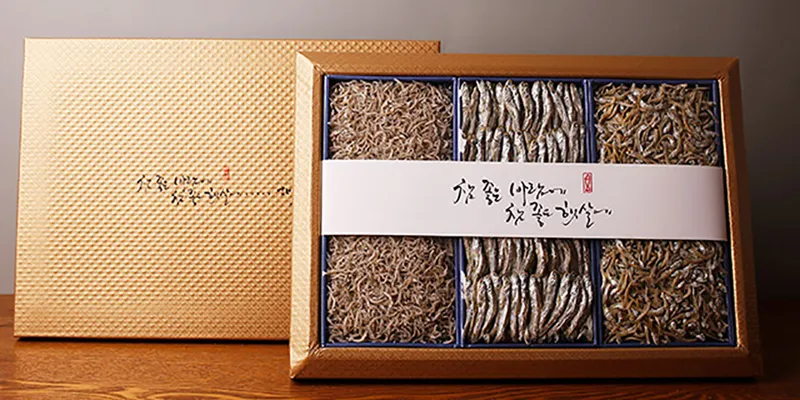 참 좋은 바람에
참 좋은 햇살......
참 좋은 바람에
참 좋은 햇살에